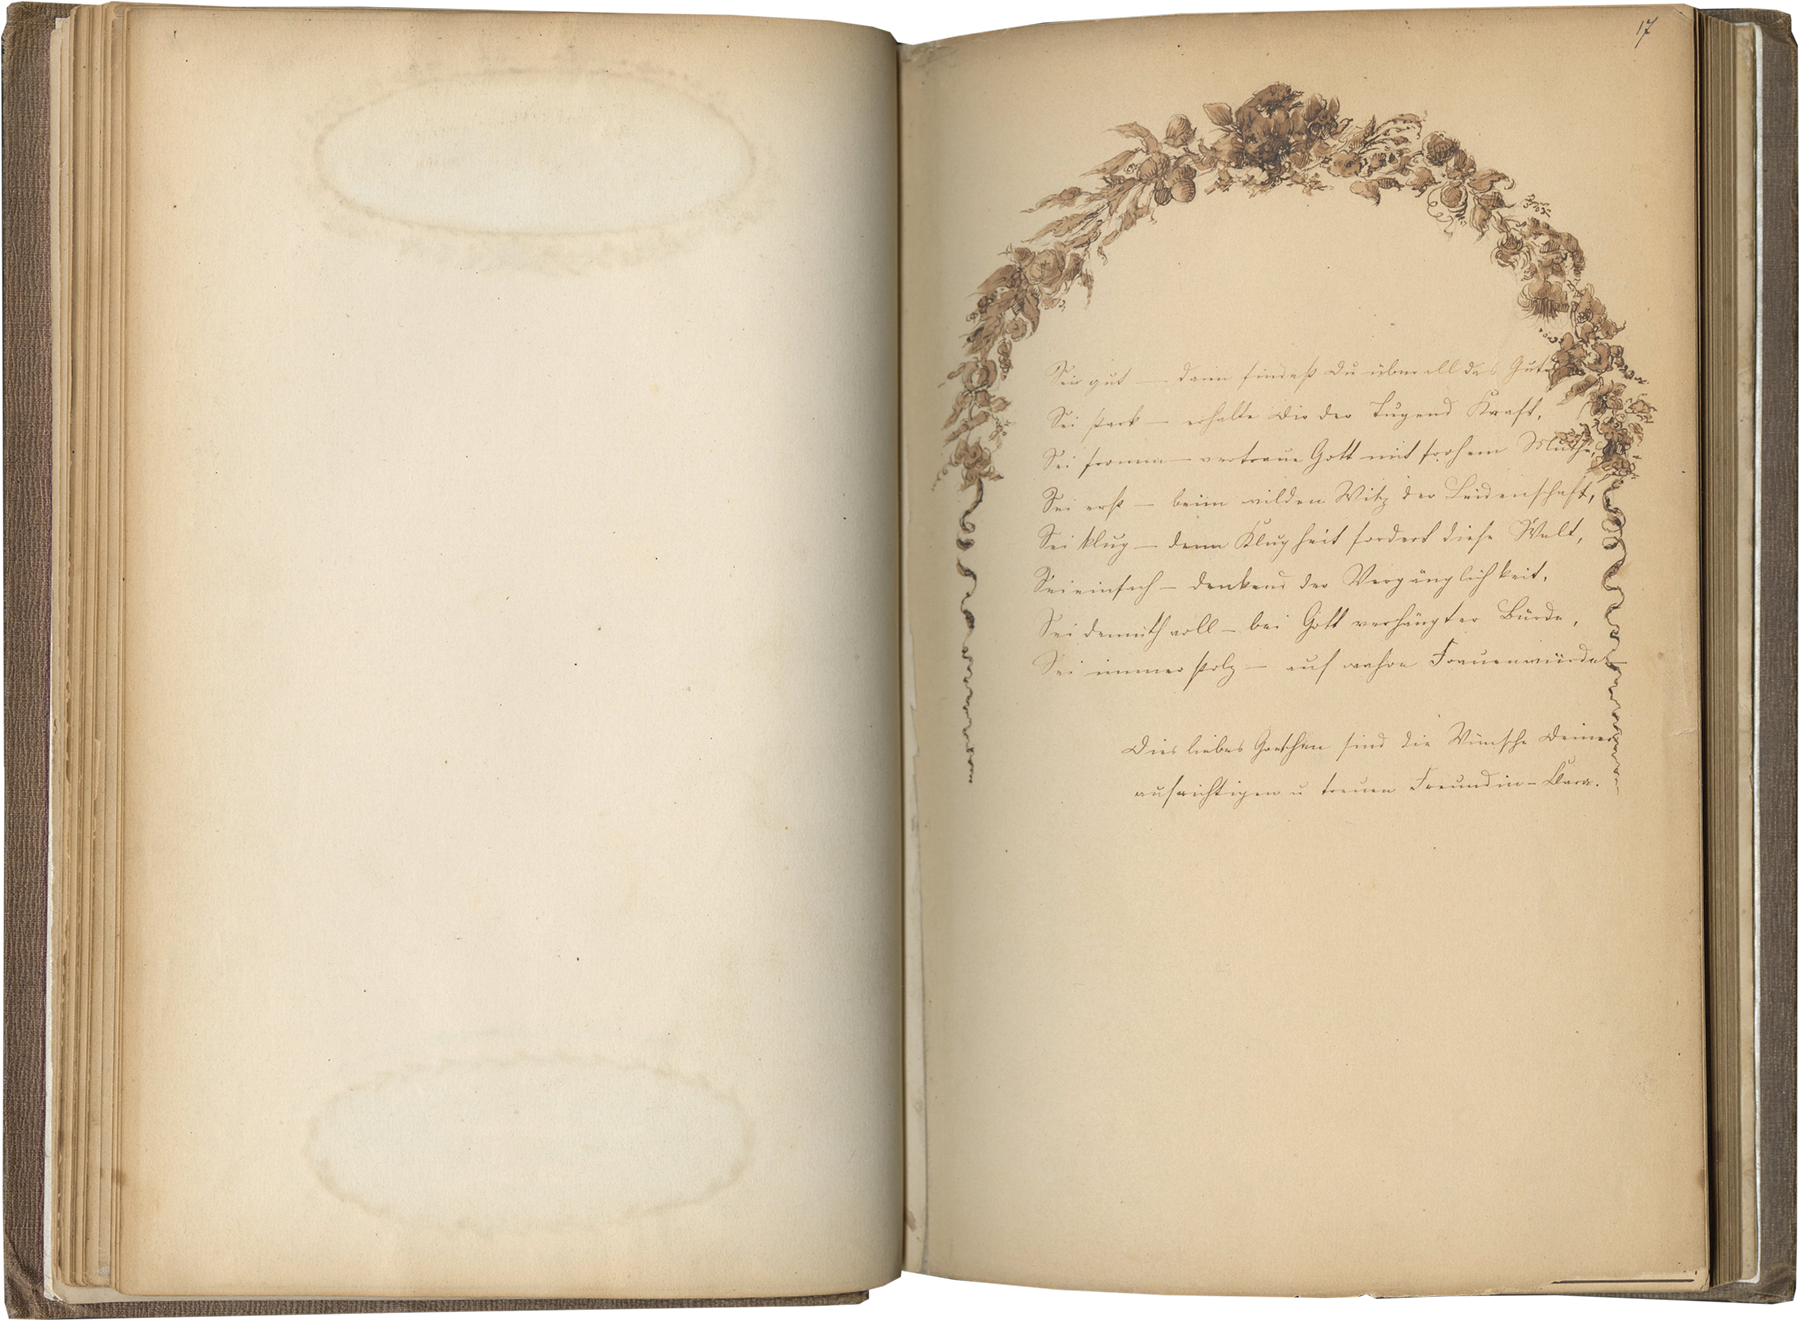 17
Sei gut — dann findest Du überall das Gute,
Sei stark — erhalte Dir der Tugend Kraft,
Sei fromm — vertraue Gott mit frohem Muthe,
Sei erst — beim wilden Witz der Leidenschaft,
Sei klug — denn Klugheit fordert diese Welt,
Sei einfach — denkend der Vergänglichkeit,
Sei demuthvoll — bei Gott verhängter Bürde,
Sei immer stolz — auf wahre Frauenwürde
Dies liebes Gretchen sind die Wünsche Deiner
aufrichtigen u treuen Freundin –